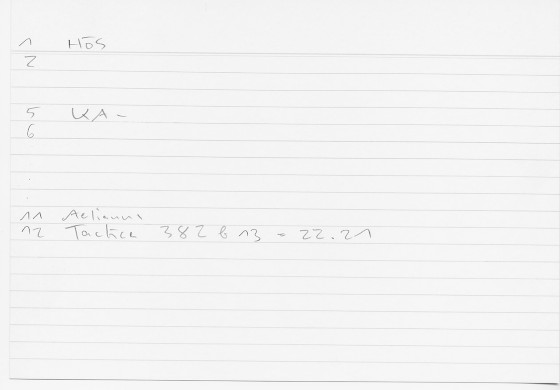 1 HōS
2
5 KA-
6
11 Aelianus
12 Tactica 382 b 13 = 22.21